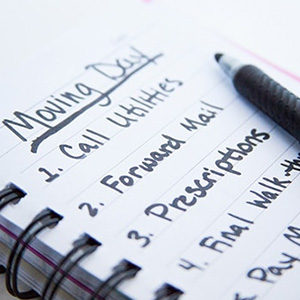 Moving Day
1. Call Utilities
2. Forward Mail
3. Prescriptions
4. Final Walk-th
Pay M